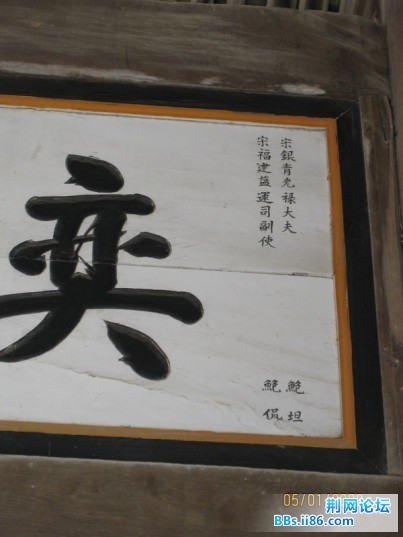 宋銀青光禄大夫
鮑坦
宋福建盐運司副使
鮑侃
奕
05/01
荆网论坛
BBs.ii86.com